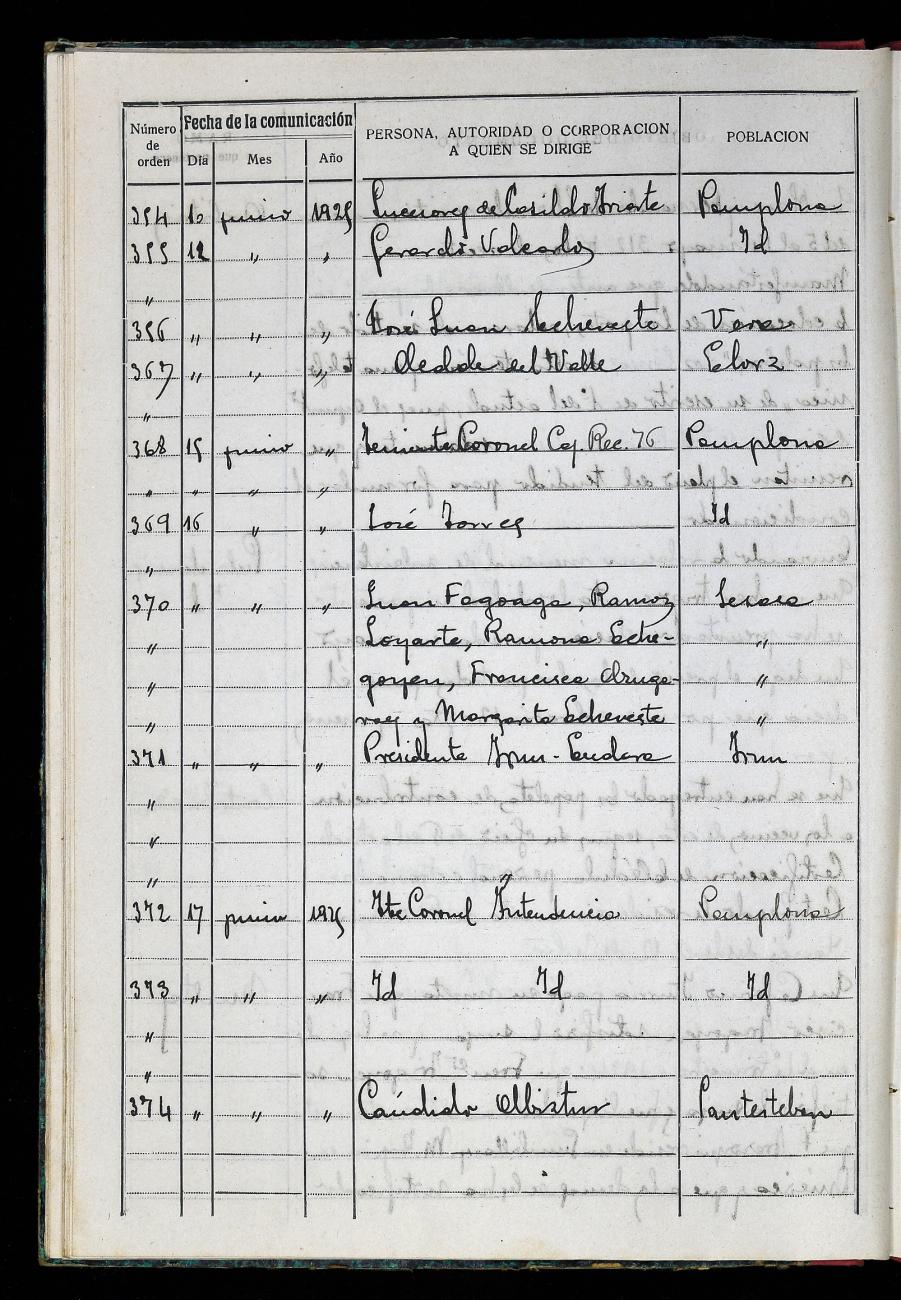 Número de orden
Fecha de la comunicación
Día Mes Año
PERSONA, AUTORIDAD O CORPORACION
A QUIEN SE DIRIGE
POBLACION
354 10 junio 1925 Sucesores de Casildo Iriarte Pamplona
355 12 " " Gerardo Valcarlos Id
"
356 " " " José Juan Echeveste Vera
367 " " " Alcalde del Valle Elorz
"
368 15 junio " Teniente Coronel Caj. Rec. 76 Pamplona
" " " "
369 16 " " José Torres Id
"
370 " " " Juan Fagoaga, Ramoz Lesaca
" Loyarte, Ramona Eche- "
" goyen, Francisca "
" y Margarita Echeveste "
371 " " " Presidente Irun-Endara Irun
"
"
" "
372 17 junio 1925 Tte Coronel Intendencia Pamplona
373 " " " Id Id Id
"
"
374 " " " Cándido Albistur Santesteban